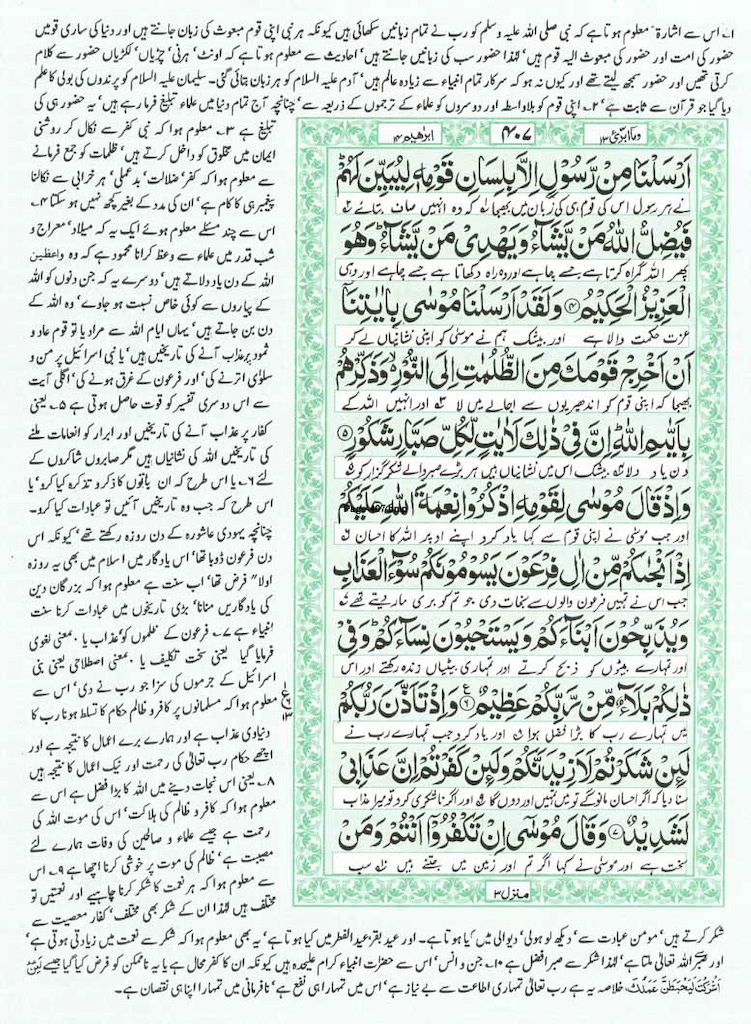 ۱۔ اس سے اشارۃً معلوم ہوتا ہے کہ نبی صلی اللہ علیہ وسلم کو رب نے تمام زبانیں سکھائی ہیں کیونکہ ہر نبی اپنی قوم مبعوث کی زبان جانتے ہیں اور دنیا کی ساری قومیں
حضور کی امت اور حضور کی مبعوث الیہ قوم ہیں' لہٰذا حضور سب کی زبانیں جانتے ہیں' احادیث سے معلوم ہوتا ہے کہ اونٹ' ہرنی' چڑیاں' لکڑیاں حضور سے کلام
کرتی تھیں اور حضور سمجھ لیتے تھے اور کیوں نہ ہو کہ سرکار تمام انبیاء سے زیادہ عالم ہیں' آدم علیہ السلام کو ہر زبان بتائی گئی۔ سلیمان علیہ السلام کو پرندوں کی بولی کا علم
دیا گیا جو قرآن سے ثابت ہے' ۲۔ اپنی قوم کو بلاواسطہ اور دوسروں کو علماء کے ترجموں کے ذریعہ سے' چنانچہ آج تمام دنیا میں علماء تبلیغ فرما رہے ہیں' یہ حضور ہی کی
وما ابرئ ۱۳
۴۰۷
ابراھیم ۱۴
اَرْسَلْنَا مِنْ رَّسُوْلٍ اِلَّا بِلِسَانِ قَوْمِهٖ لِیُبَیِّنَ لَهُمْ
نے ہر رسول اس کی قوم ہی کی زبان میں بھیجا کہ وہ انہیں صاف بتائے
فَیُضِلُّ اللّٰهُ مَنْ یَّشَآءُ وَیَهْدِیْ مَنْ یَّشَآءُ وَهُوَ
پھر اللہ گمراہ کرتا ہے جسے چاہے اور وہ راہ دکھاتا ہے جسے چاہے اور وہی
الْعَزِیْزُ الْحَكِیْمُ ۴ وَلَقَدْ اَرْسَلْنَا مُوْسٰی بِاٰیٰتِنَا
عزت حکمت والا ہے اور بیشک ہم نے موسٰی کو اپنی نشانیاں لے کر
اَنْ اَخْرِجْ قَوْمَكَ مِنَ الظُّلُمٰتِ اِلَی النُّوْرِ وَذَكِّرْهُمْ
بھیجا کہ اپنی قوم کو اندھیریوں سے اجالے میں لا اور انہیں اللہ کے
بِاَیّٰىمِ اللّٰهِ اِنَّ فِیْ ذٰلِكَ لَاٰیٰتٍ لِّكُلِّ صَبَّارٍ شَكُوْرٍ ۵
دن یاد دلا بیشک اس میں نشانیاں ہیں ہر بڑے صبر والے شکر گزار کو
وَاِذْ قَالَ مُوْسٰی لِقَوْمِهِ اذْكُرُوْا نِعْمَةَ اللّٰهِ عَلَیْكُمْ
اور جب موسٰی نے اپنی قوم سے کہا یاد کرو اپنے اوپر اللہ کا احسان
اِذْ اَنْجٰىكُمْ مِّنْ اٰلِ فِرْعَوْنَ یَسُوْمُوْنَكُمْ سُوْٓءَ الْعَذَابِ
جب اس نے تمہیں فرعون والوں سے نجات دی جو تم کو بری مار دیتے تھے
وَیُذَبِّحُوْنَ اَبْنَآءَكُمْ وَیَسْتَحْیُوْنَ نِسَآءَكُمْ وَفِیْ
اور تمہارے بیٹوں کو ذبح کرتے اور تمہاری بیٹیاں زندہ رکھتے اور اس
ذٰلِكُمْ بَلَآءٌ مِّنْ رَّبِّكُمْ عَظِیْمٌ ۶ وَاِذْ تَاَذَّنَ رَبُّكُمْ
میں تمہارے رب کا بڑا فضل ہوا اور یاد کرو جب تمہارے رب نے
لَىِٕنْ شَكَرْتُمْ لَاَزِیْدَنَّكُمْ وَلَىِٕنْ كَفَرْتُمْ اِنَّ عَذَابِیْ
سنا دیا کہ اگر احسان مانو گے تو میں تمہیں اور دوں گا اور اگر ناشکری کرو تو میرا عذاب
لَشَدِیْدٌ ۷ وَقَالَ مُوْسٰی اِنْ تَكْفُرُوْۤا اَنْتُمْ وَمَنْ
سخت ہے اور موسٰی نے کہا اگر تم اور زمین میں جتنے ہیں سب
منزل ۳
تبلیغ ہے ۳۔ معلوم ہوا کہ نبی کفر سے نکال کر روشنی
ایمان میں مخلوق کو داخل کرتے ہیں' ظلمات کو جمع فرمانے
سے معلوم ہوا کہ کفر' ضلالت' بدعملی' ہر خرابی سے نکالنا
پیغمبر ہی کا کام ہے' ان کی مدد کے بغیر کچھ نہیں ہو سکتا ۴۔
اس سے چند مسئلے معلوم ہوئے ایک یہ کہ میلاد' معراج و
شب قدر میں علماء سے وعظ کرانا محمود ہے کہ وہ واعظین
اللہ کے دن یاد دلاتے ہیں' دوسرے یہ کہ جن دنوں کو اللہ
کے پیاروں سے کوئی خاص نسبت ہو جاوے' وہ اللہ کے
دن بن جاتے ہیں' یہاں ایام اللہ سے مراد یا تو قوم عاد و
ثمود پر عذاب آنے کی تاریخیں ہیں' یا بنی اسرائیل پر من و
سلوٰی اترنے کی' اور فرعون کے غرق ہونے کی' اگلی آیت
سے اس دوسری تفسیر کو قوت حاصل ہوتی ہے ۵۔ یعنی
کفار پر عذاب آنے کی تاریخیں اور ابرار کو انعامات ملنے
کی تاریخیں اللہ کی نشانیاں ہیں مگر صابروں شاکروں کے
لئے ۶۔ یا اس طرح کہ ان باتوں کا ذکر و تذکرہ کیا کرو' یا
اس طرح کہ جب وہ تاریخیں آئیں تو عبادات کیا کرو۔
چنانچہ یہودی عاشورہ کے دن روزہ رکھتے تھے' کیونکہ اس
دن فرعون ڈوبا تھا' اس یادگار میں اسلام میں بھی یہ روزہ
اولاً فرض تھا' اب سنت ہے معلوم ہوا کہ بزرگان دین
کی یادگاریں منانا' بڑی تاریخوں میں عبادات کرنا سنت
انبیاء ہے ۷۔ فرعون کے ظلموں کو عذاب یا بمعنی لغوی
فرمایا گیا یعنی سخت تکلیف یا بمعنی اصطلاحی یعنی بنی
اسرائیل کے جرموں کی سزا جو رب نے دی' اس سے
معلوم ہوا کہ مسلمانوں پر کافر و ظالم حکام کا تسلط ہونا رب کا
دنیاوی عذاب ہے اور ہمارے برے اعمال کا نتیجہ ہے اور
اچھے حکام رب تعالٰی کی رحمت اور نیک اعمال کا نتیجہ ہیں
۸۔ یعنی اس نجات دینے میں اللہ کا بڑا فضل ہے اس سے
معلوم ہوا کہ کافر و ظالم کی ہلاکت' اس کی موت اللہ کی
رحمت ہے جیسے علماء و صالحین کی وفات ہمارے لئے
مصیبت ہے' ظالم کی موت پر خوشی کرنا اچھا ہے ۹۔ اس
سے معلوم ہوا کہ ہر نعمت کا شکر کرنا چاہیے اور نعمتیں تو
مختلف ہیں لہٰذا ان کے شکر بھی مختلف' کفار معصیت سے
شکر کرتے ہیں' مومن عبادت سے' دیکھ لو ہولی' دیوالی میں کیا ہوتا ہے۔ اور عید بقر' عید الفطر میں کیا ہوتا ہے' یہ بھی معلوم ہوا کہ شکر سے نعمت میں زیادتی ہوتی ہے'
اور صبر سے اللہ تعالٰی ملتا ہے' لہٰذا شکر سے صبر افضل ہے ۱۰۔ جن و انس' اس سے حضرات انبیاء کرام علیحدہ ہیں کیونکہ ان کا کفر محال ہے یا یہ ناممکن کو فرض کیا گیا جیسے لَئِنْ
اَشْرَكْتَ لَیَحْبَطَنَّ عَمَلُكَ خلاصہ یہ ہے رب تعالٰی تمہاری اطاعت سے بے نیاز ہے' اس میں تمہارا ہی نفع ہے' نافرمانی میں تمہارا اپنا ہی نقصان ہے۔